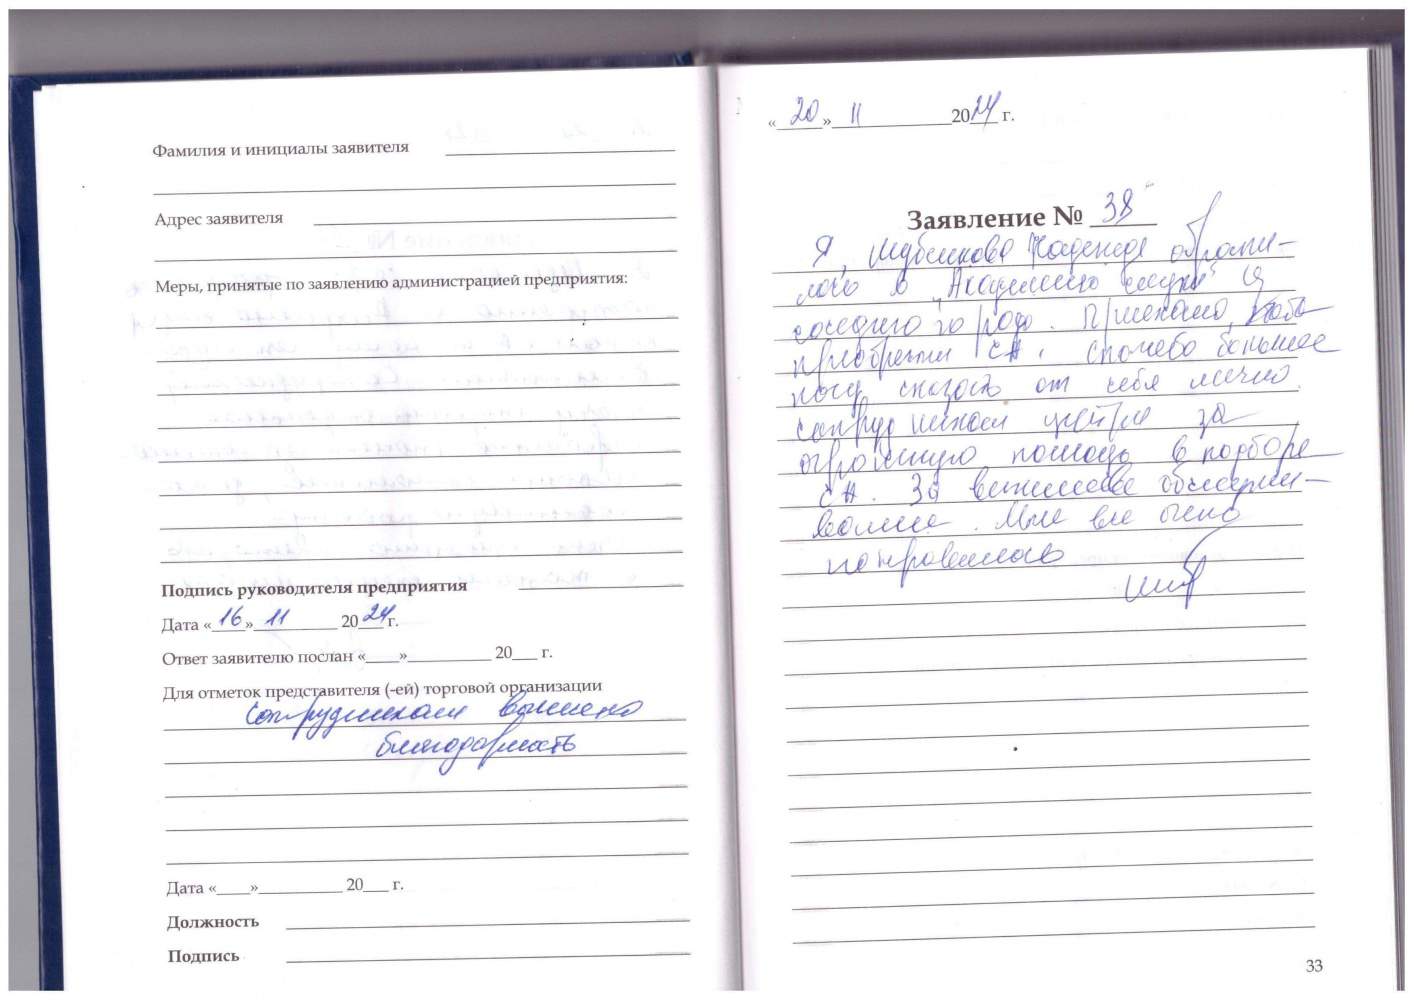 Фамилия и инициалы заявителя
Адрес заявителя
Меры, принятые по заявлению администрацией предприятия:
Подпись руководителя предприятия
Дата «16» 11 2024 г.
Ответ заявителю послан «____»__________ 20___ г.
Для отметок представителя (-ей) торговой организации
сотрудникам вынесена
благодарность
Дата «____»__________ 20___ г.
Должность
Подпись
«20» 11 2024 г.
Заявление № 38
Я, Надежда обрати-
лась в "Академию слуха" из
соседнего города. Приехала, чтобы
приобрести СА. Спасибо большое
хочу сказать от себя лично
сотрудникам центра за
огромную помощь в подборе
СА. За вежливое обслужи-
вание. Мне все очень
понравилось
33